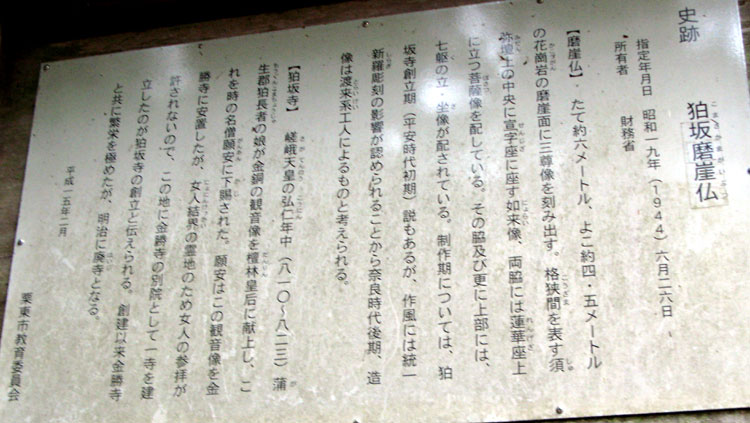 史跡　狛坂磨崖仏
指定年月日　昭和一九年(1944)六月二六日
所有者　　　財務省
【磨崖仏】　たて約六メートル、よこ約四・五メートル
の花崗岩の磨崖面に三尊像を刻み出す。格狭間を表す須
弥壇上の中央に宣字座に座す如来像、両脇には蓮華座上
に立つ菩薩像を配している。その脇及び更に上部には、
七躯の立・坐像が配されている。制作期については、狛
坂寺創立期(平安時代初期)説もあるが、作風には統一
新羅彫刻の影響が認められることから奈良時代後期、造
像は渡来系工人によるものと考えられる。
【狛坂寺】　嵯峨天皇の弘仁年中(八一〇〜八二三)蒲
生郡狛長者の娘が金銅の観音像を檀林皇后に献上し、こ
れを時の名僧願安に下賜された。願安はこの観音像を金
勝寺に安置したが、女人結界の霊地のため女人の参拝が
許されないので、この地に金勝寺の別院として一寺を建
立したのが狛坂寺の創立と伝えられる。創建以来金勝寺
と共に繁栄を極めたが、明治に廃寺となる。
平成一五年二月
栗東市教育委員会